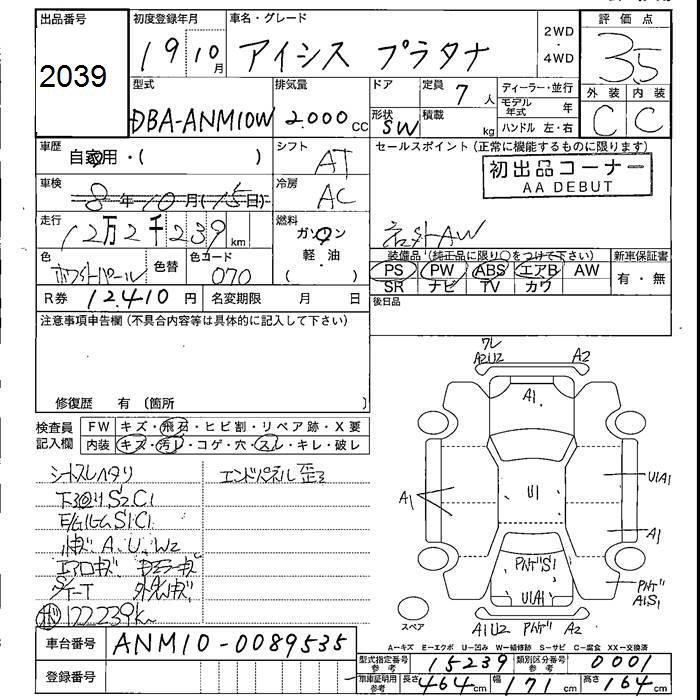 出品番号
2039
初度登録年月
19 10月
車名・グレード
アイシス プラタナ
2WD
・
4WD
評価点
3.5
外装 内装
C C
型式
DBA-ANM10W
排気量
2.000cc
ドア
形状
SW
定員 7人
積載 kg
ディーラー・並行
モデル年式 年
ハンドル 左・右
車歴
自家用・( )
シフト
AT
セールスポイント (正常に機能するものに限ります)
初出品コーナー
AA DEBUT
車検
8年10月(15日)
冷房
AC
走行
12万2千239km
燃料
ガソリン
軽・油
( )
社外AW
色
ホワイトパール
色替
色コード
070
装備品 (純正品に限り○をつけて下さい)
PS PW ABS エアB AW
SR ナビ TV カワ
新車保証書
有・無
R券 12,410円
名変期限 月 日
後日品
注意事項申告欄 (不具合内容等は具体的に記入して下さい)
修復歴 有 〔箇所 〕
検査員
記入欄
FW キズ・飛石・ヒビ割・リペア跡・X要
内装 キズ・汚レ・コゲ・穴・スレ・キレ・破レ
シートスレヘタリ
エンドパネル歪ミ
下廻りS2.C1
E/GルームS1C1
小キズ A.U.W2
エアロキズ
S/T-T
122,239km
ワレ
A2U2 A2
A1
U1
U1A1
A1
A1
パルナゲS1
U1A1
A1S1
A1U2 A2
スペア
A-キズ E-エクボ U-凹み W-補修跡 S-サビ C-腐食 XX-交換済
車台番号
ANM10-0089535
登録番号
型式指定番号
参考
15239
類別区分番号
参考
0001
車庫証明用
参考
長さ 464cm 幅 171cm 高さ 164cm